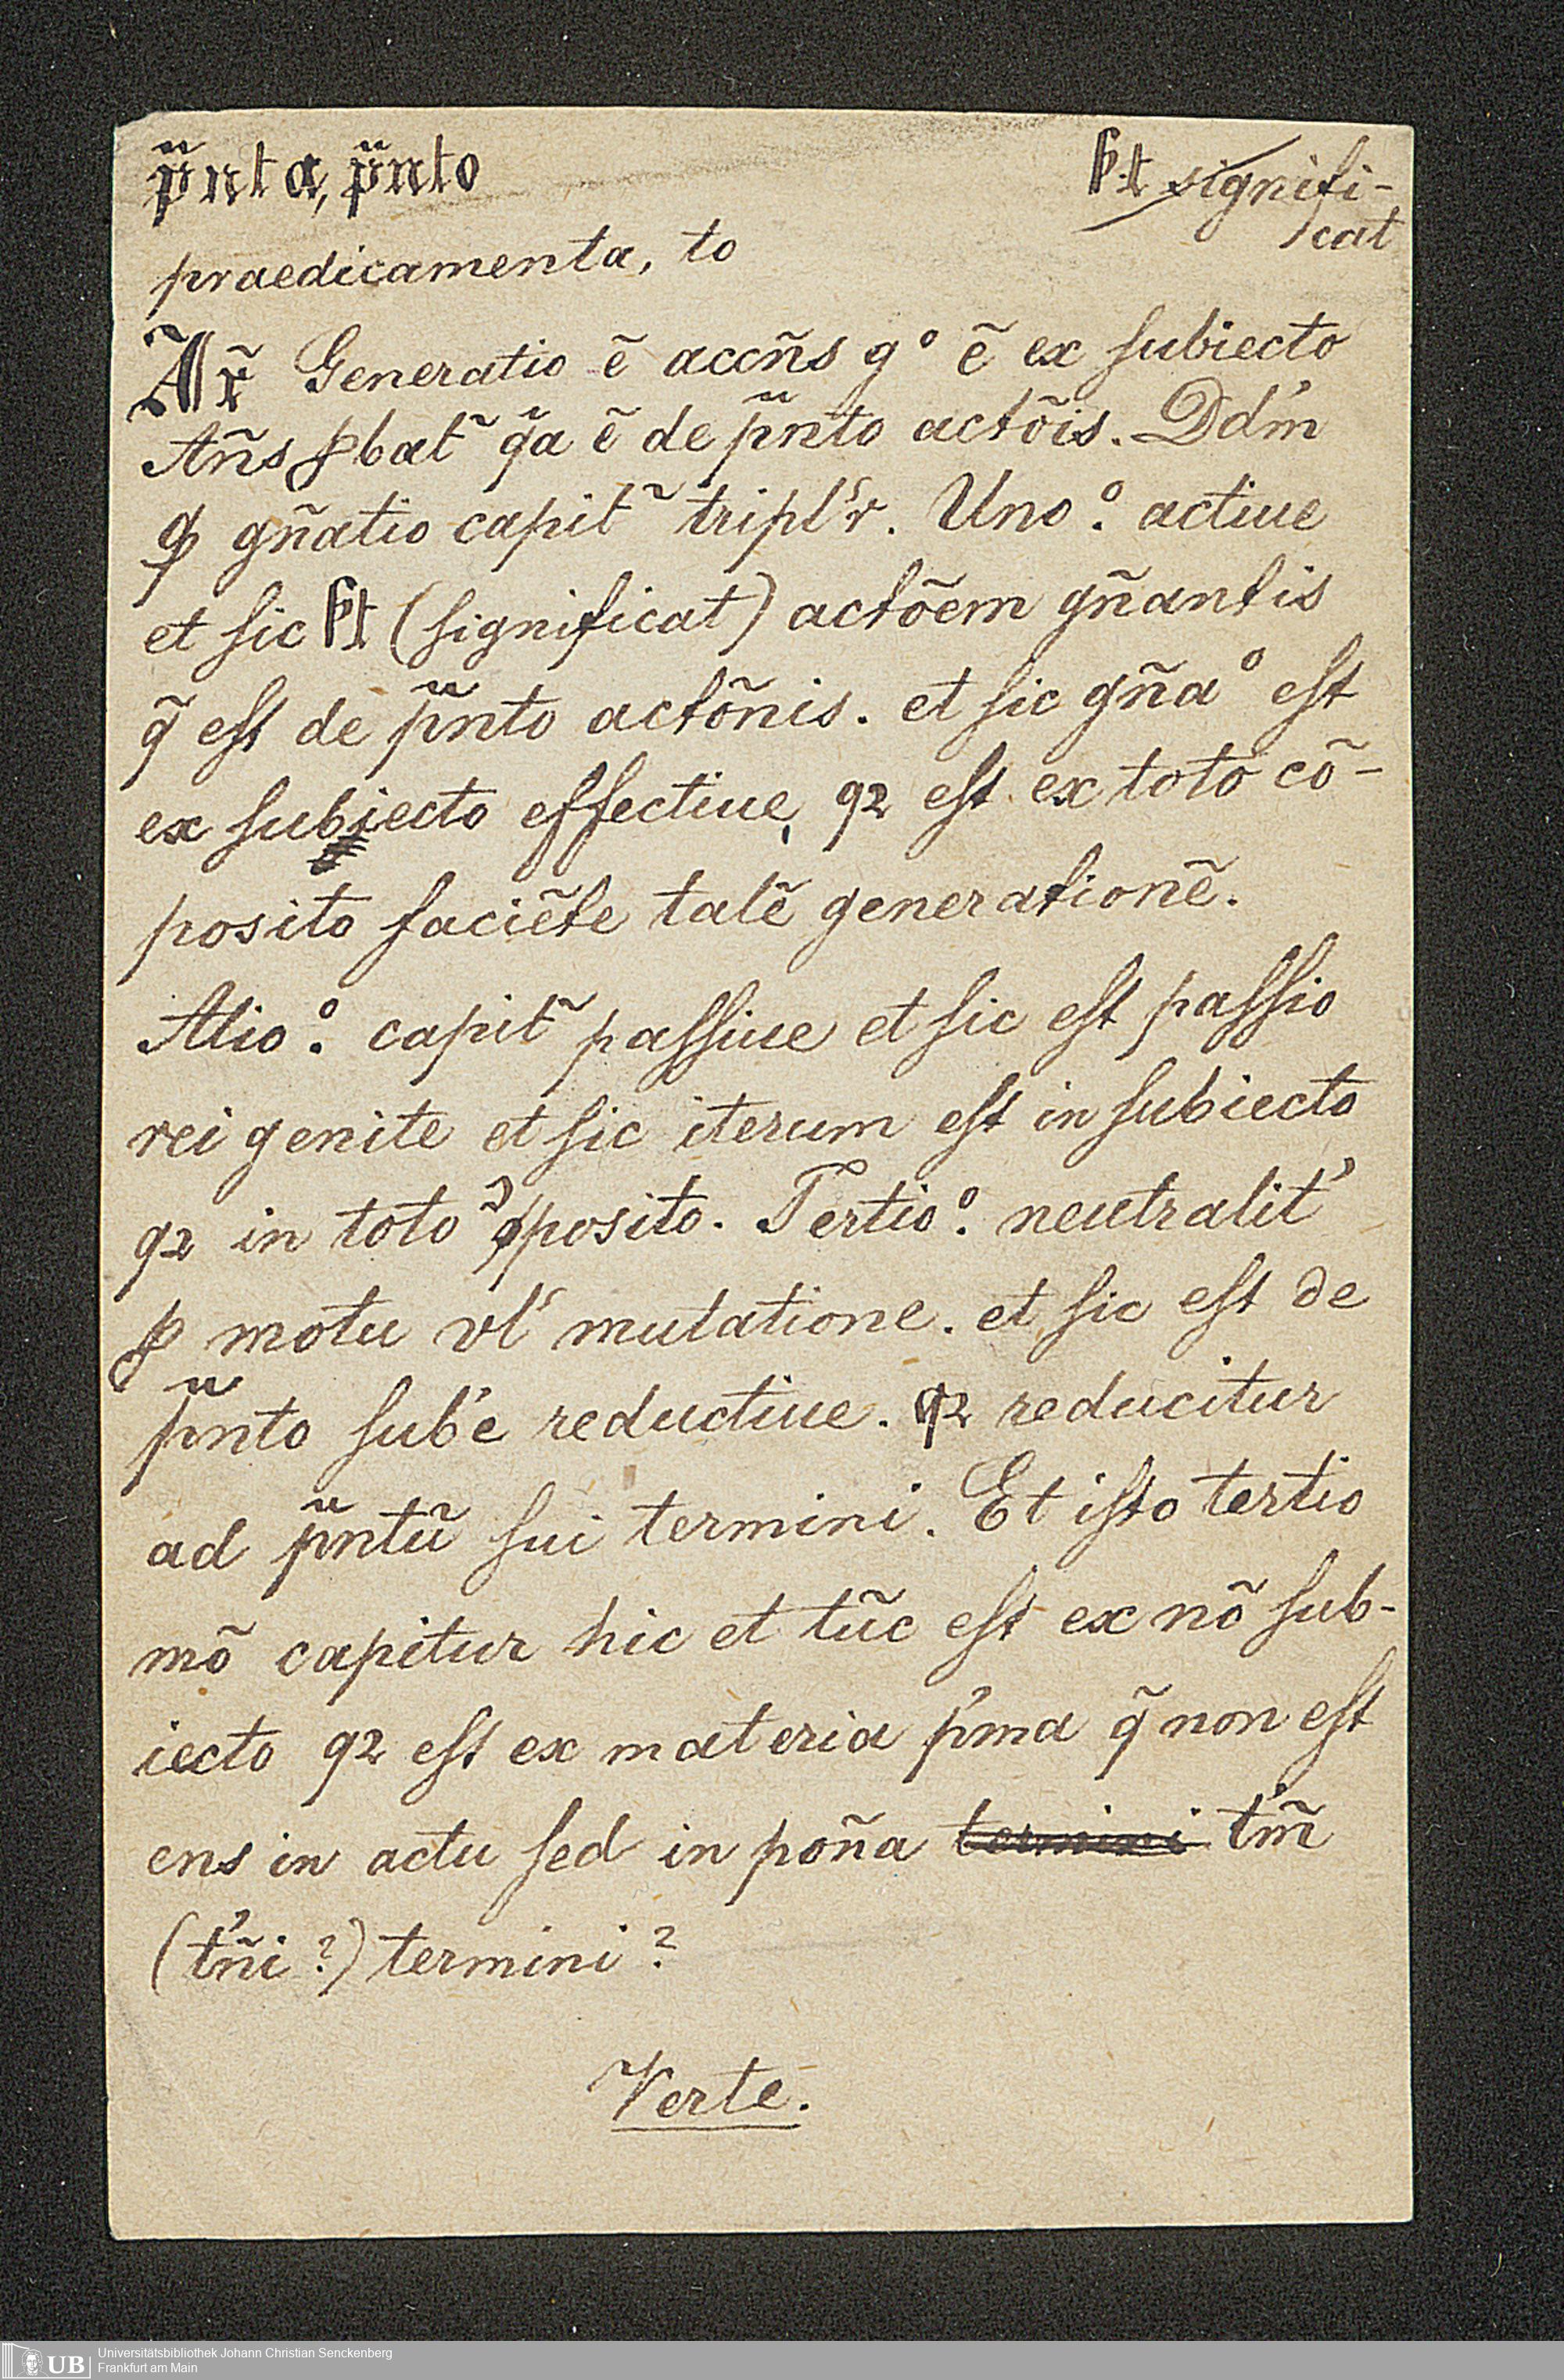 p̃nta, p̃nto
ſꝑt signifi-
cat
praedicamenta, to
Ar̃ Generatio ẽ accñs g° ẽ ex ſubiecto
Añs ꝓbat᷉ q̃a ẽ de p̃nto actõis. Dd'm
ꝙ gñatio capit᷉ tripl'r. Uno.° actiue
et ſic ſꝑt (ſignificat) actõem gñantis
q̃ eſt de p̃nto actõnis. et ſic gña° eſt
ex ſubiecto effectiue, qꝛ eſt ex toto cõ-
posito faciẽte talẽ generationẽ.
Alio.° capit᷉ paſſiue et ſic eſt paſſio
rei genite et ſic iterum eſt in ſubiecto
qꝛ in toto ꝯposito. Tertio.° neutralit'
ꝓ motu vl' mutatione. et ſic eſt de
p̃nto ſub'e reductiue. qꝛ reducitur
ad p̃ntũ ſui termini. Et iſto tertio
mõ capitur hic et tũc eſt ex nõ ſub-
iecto qꝛ eſt ex materia p'ma q̃ non eſt
ens in actu ſed in poña termini t'm̃
(t'ñi?) termini?
Verte.
Universitätsbibliothek Johann Christian Senckenberg
UB Frankfurt am Main